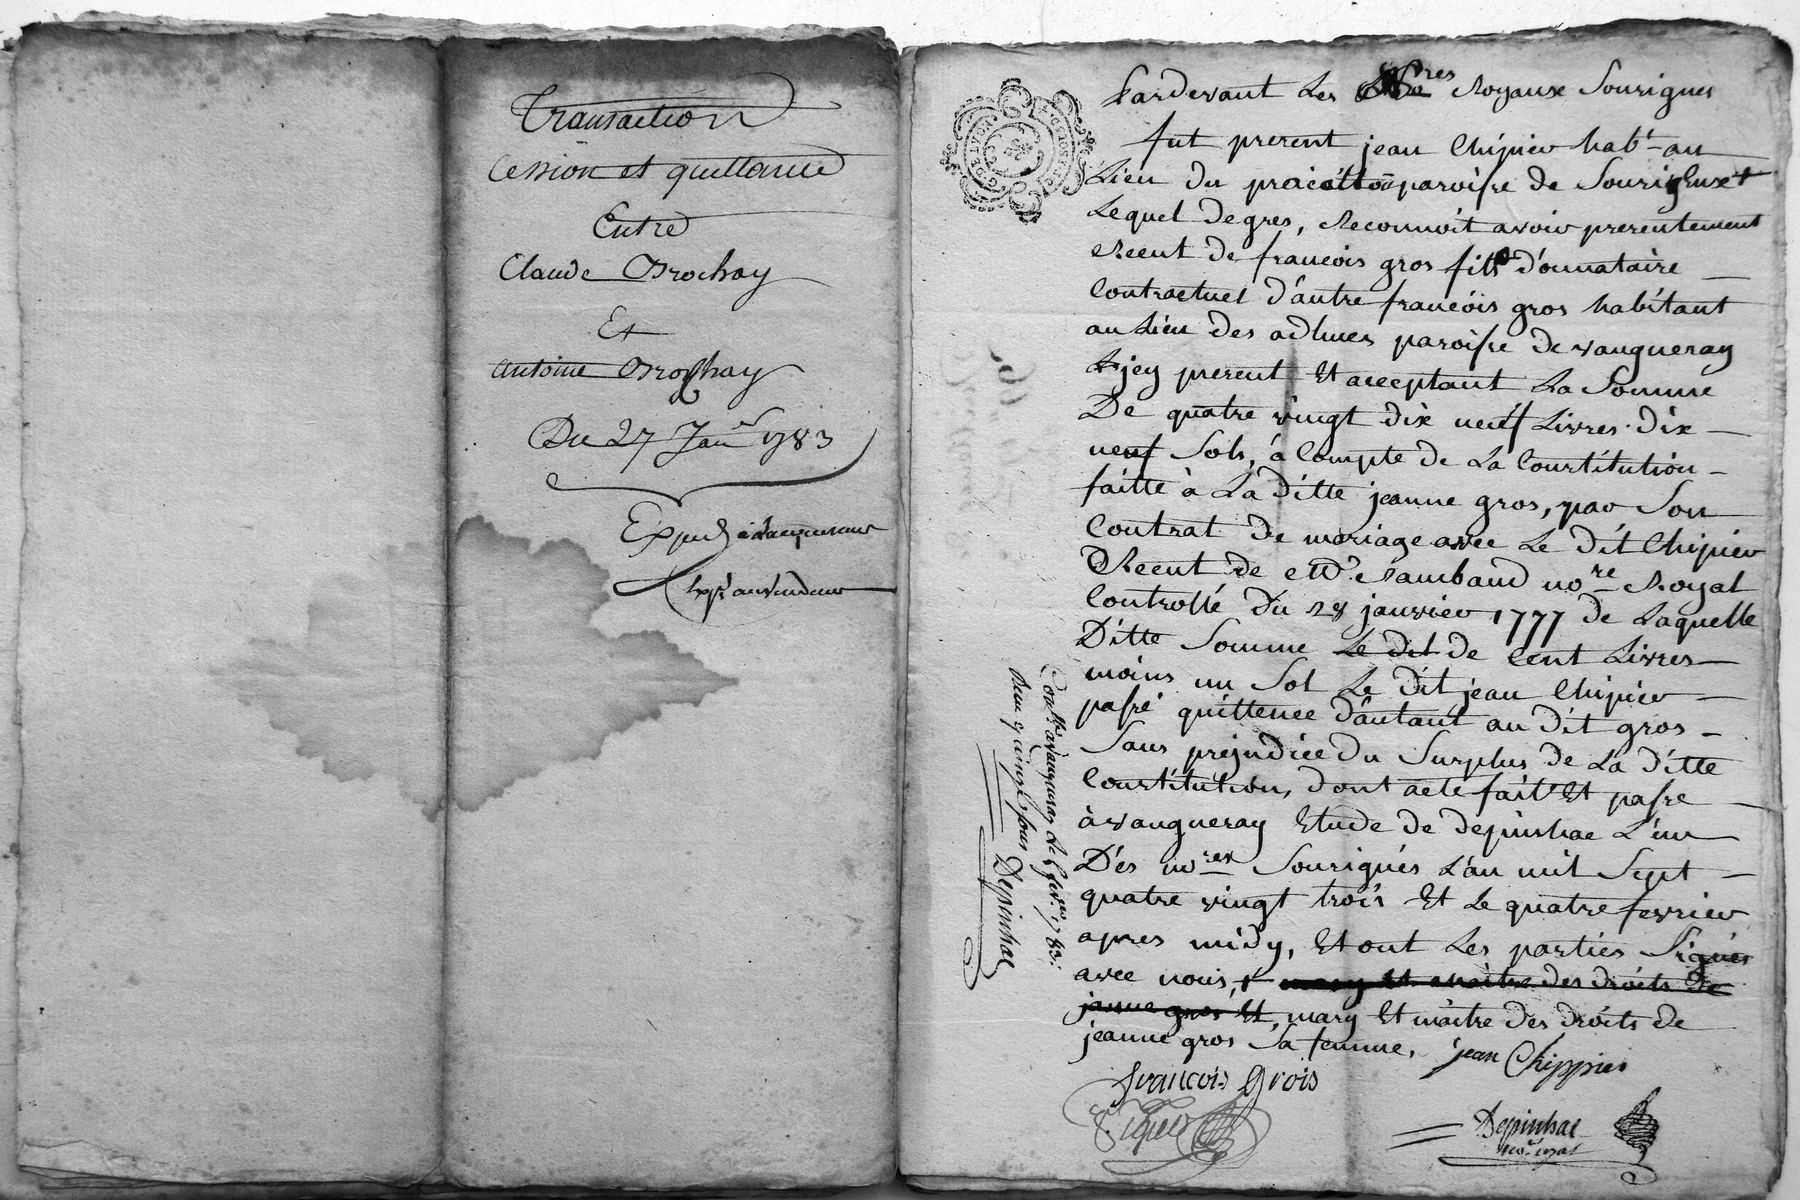 Transaction
Cession et quittance
Entre
Claude Brochay
Et
Antoine Brochay
Du 27 Janr 1783
Expedé à l'acquereur
Expé au vendeur
G. DE LYON
Pardevant Les Nores Royaux Sousignes
fut present jean Chipier habt au
Lieu du paroisse de Sourigneux +
Lequel de gres, Reconnoit avoir presentement
Receut de francois gros fils donnataire
Contractuel d'autre francois gros habitant
au Lieu des adhues paroisse de vaugneray
Icy present Et acceptant La Somme
De quatre vingt dix neuf Livres dix
neuf Sols, à Compte de La Constitution
faitte à La ditte jeanne gros, par Son
Contrat de mariage avec Le dit Chipier
Receut de Me Rambaud nore Royal
Controllé du 28 janvier 1777 de Laquelle
Ditte Somme Le dit de Cent Livres
moins un Sol Le dit jean Chipier
passé quittence d'autant au dit gros
Sans prejudice du Surplus de La ditte
Constitution, dont acte fait Et passe
à vaugneray Etude de depinhac L'un
Des nores Sousignés L'an mil Sept
quatre vingt trois Et Le quatre fevrier
apres midy, Et ont Les parties Signés
avec nous, + mary Et maitre des droits de
jeanne gros Et, mary Et maitre des droits de
jeanne gros Sa femme. jean Chippier
francois Grois
Depinhac
nore royal
Contllé à vaugneray Le 1783.
Reçu quinze sous Depinhac